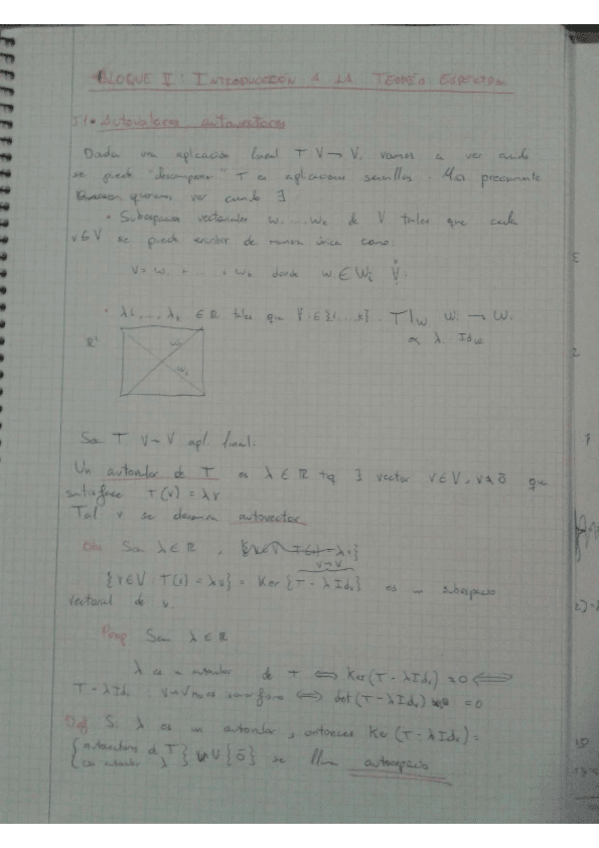 BLOQUE II: INTRODUCCIÓN A LA TEORÍA ESPECTRAL
51. Autovalores, autovectores
Dada una aplicación lineal T V → V, vamos a ver cuando
se puede "descomponer" T en aplicaciones sencillas. Mas precisamente
queremos ver cuando ∃
• Subespacios vectoriales W₁ ... Wk de V tales que cada
v ∈ V se puede escribir de manera única como:
V = W₁ + ... + Wk donde Wi ∈ Wi
• λ1, ..., λk ∈ ℝ tales que ∀i ∈ {1...k} T|w W → W
es λ Id
ℝ²
W₁
W₂
Sea T V → V apl. lineal.
Un autovalor de T es λ ∈ ℝ tq ∃ vector v ∈ V, v ≠ 0 que
satisface T(v) = λv
Tal v se denomina autovector
Obs Sea λ ∈ ℝ,
V → V
{v ∈ V : T(v) = λv} = Ker {T - λ Idv} es un subespacio
vectorial de v.
Prop Sea λ ∈ ℝ
λ es un autovalor de T ⟺ Ker(T - λIdv) ≠ 0 ⟺
T - λIdv : V → V no es isomorfismo ⟺ det(T - λIdv) = 0
Def Si λ es un autovalor, entonces Ker (T - λIdv) =
{autovectores de T con autovalor λ} ∪ {0} se llama autoespacio